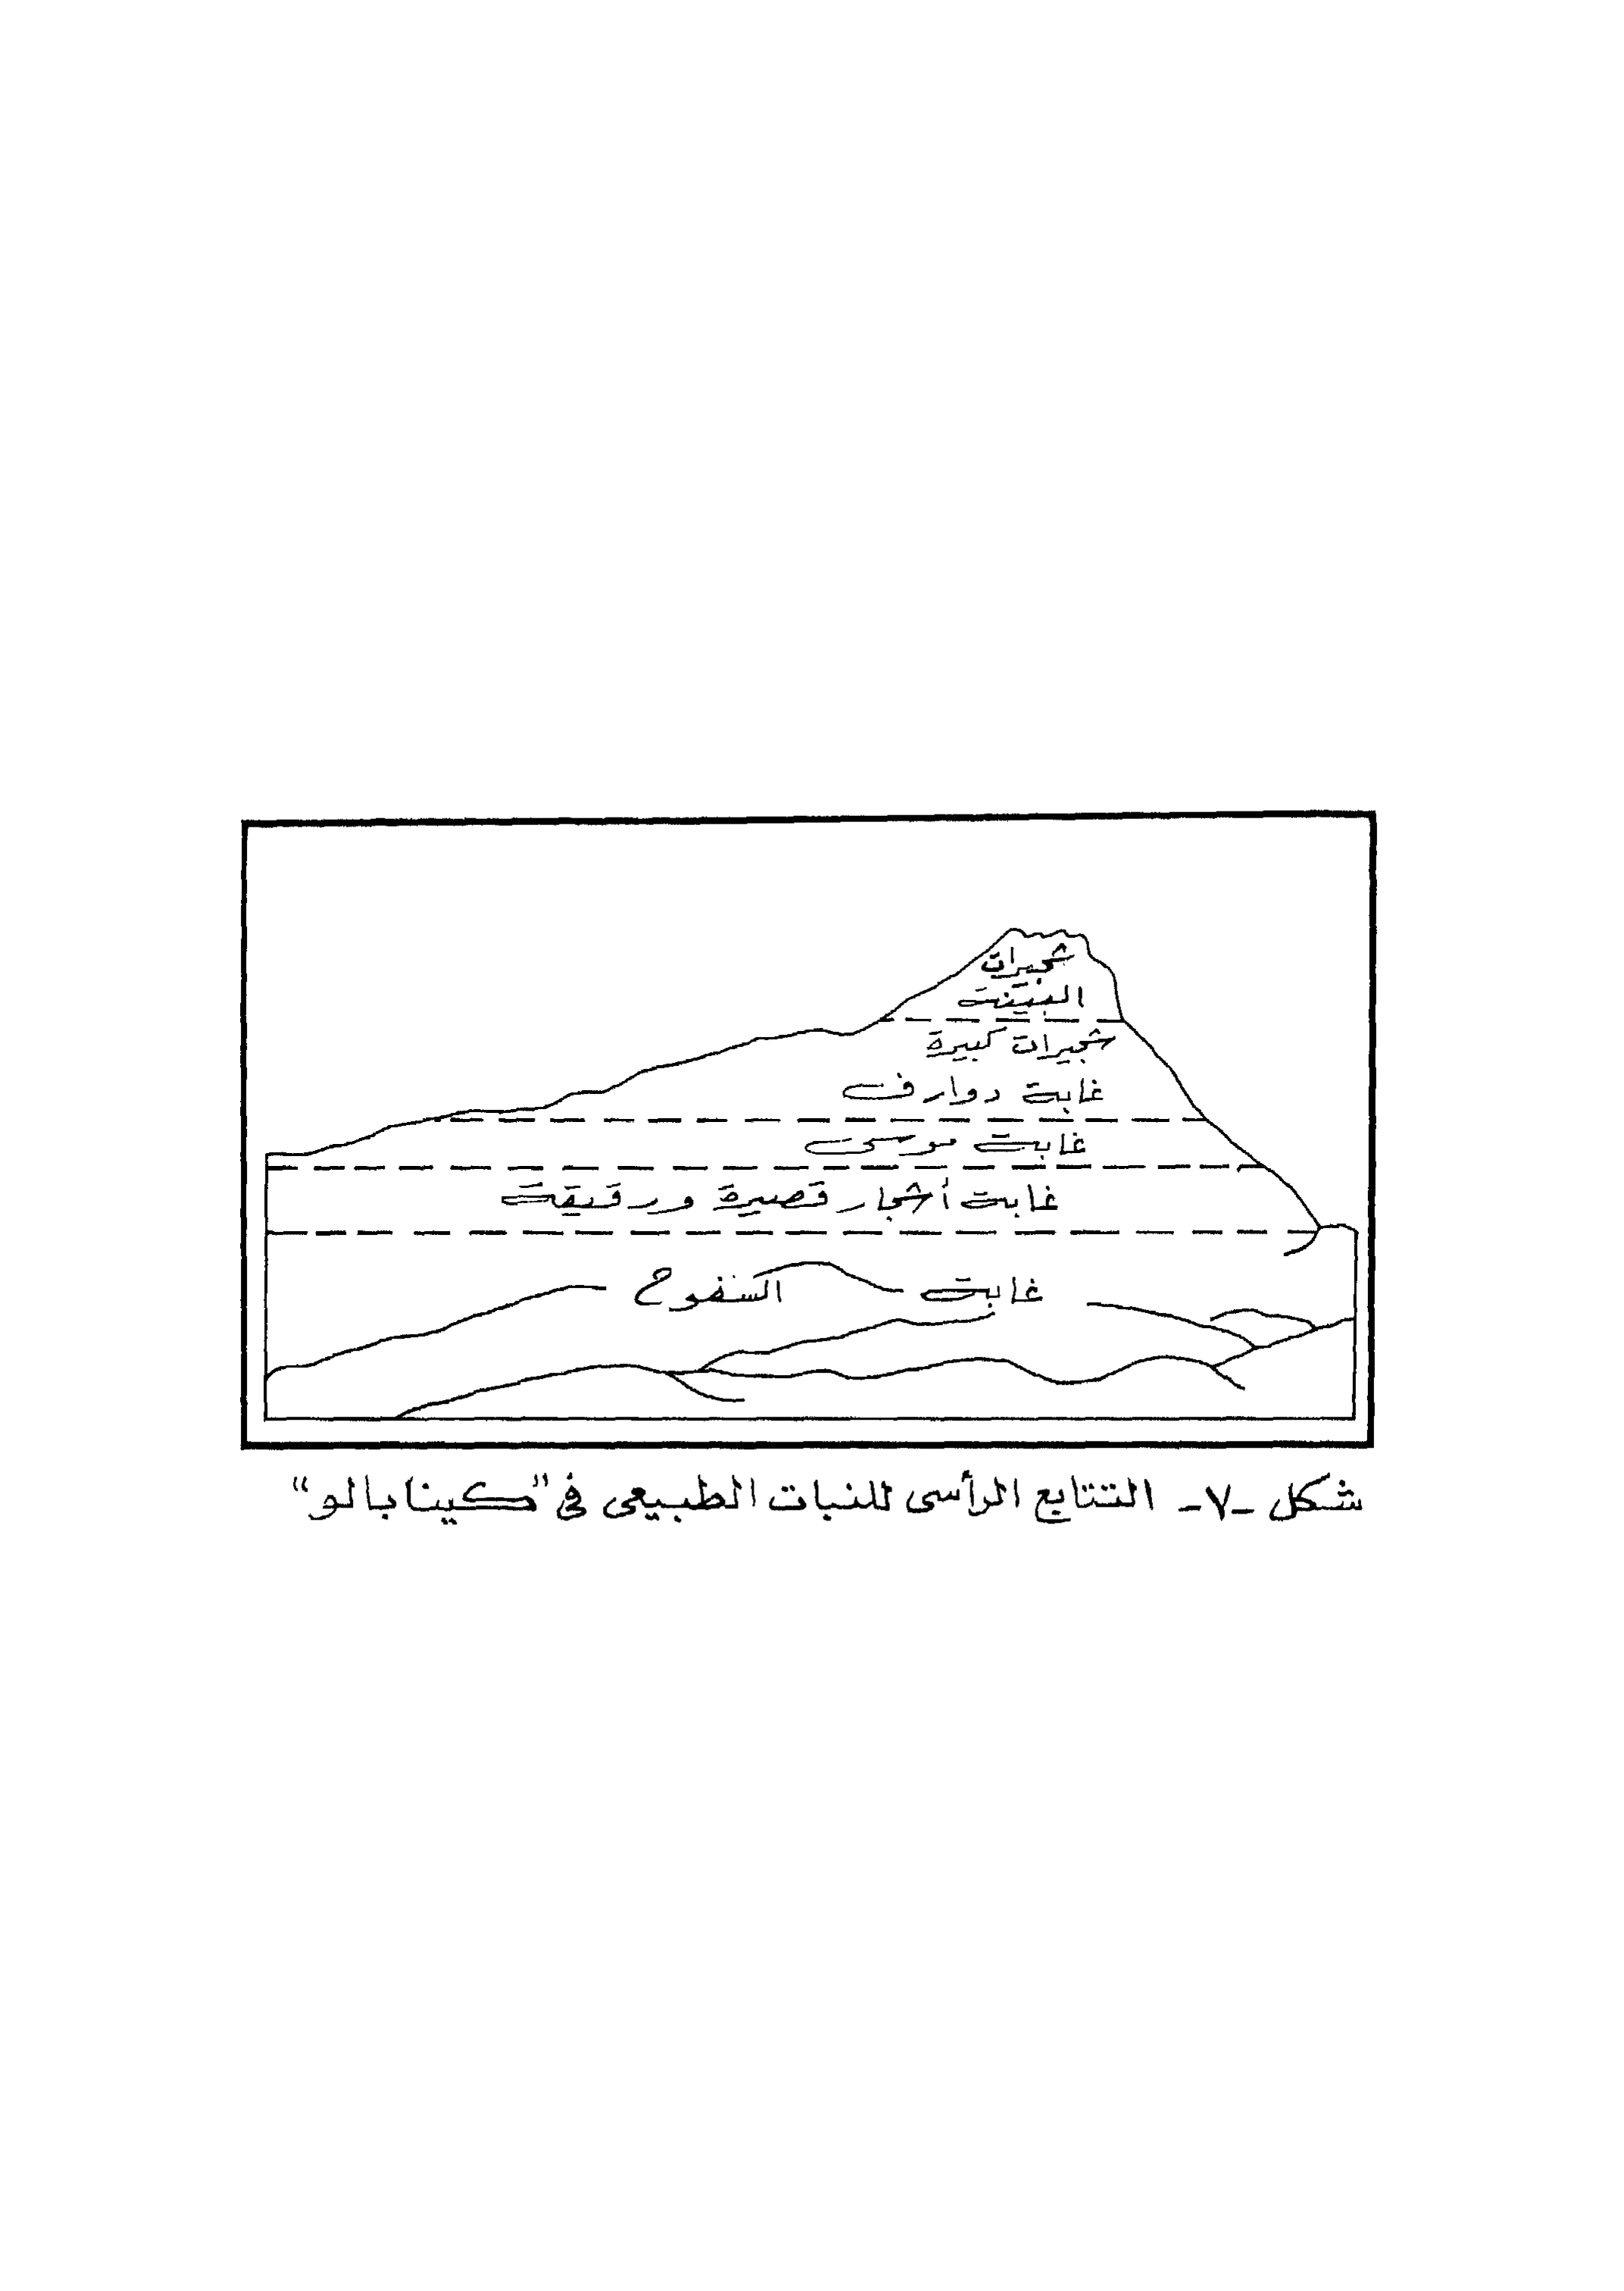 شجيرات
البينة
شجيرات كبيرة
غابة دوارف
غابة موسى
غابة أشجار قصيرة ورقيقة
غابة السفوح
شكل -٧- التتابع الرأسى للنبات الطبيعى فى "كينابالو"